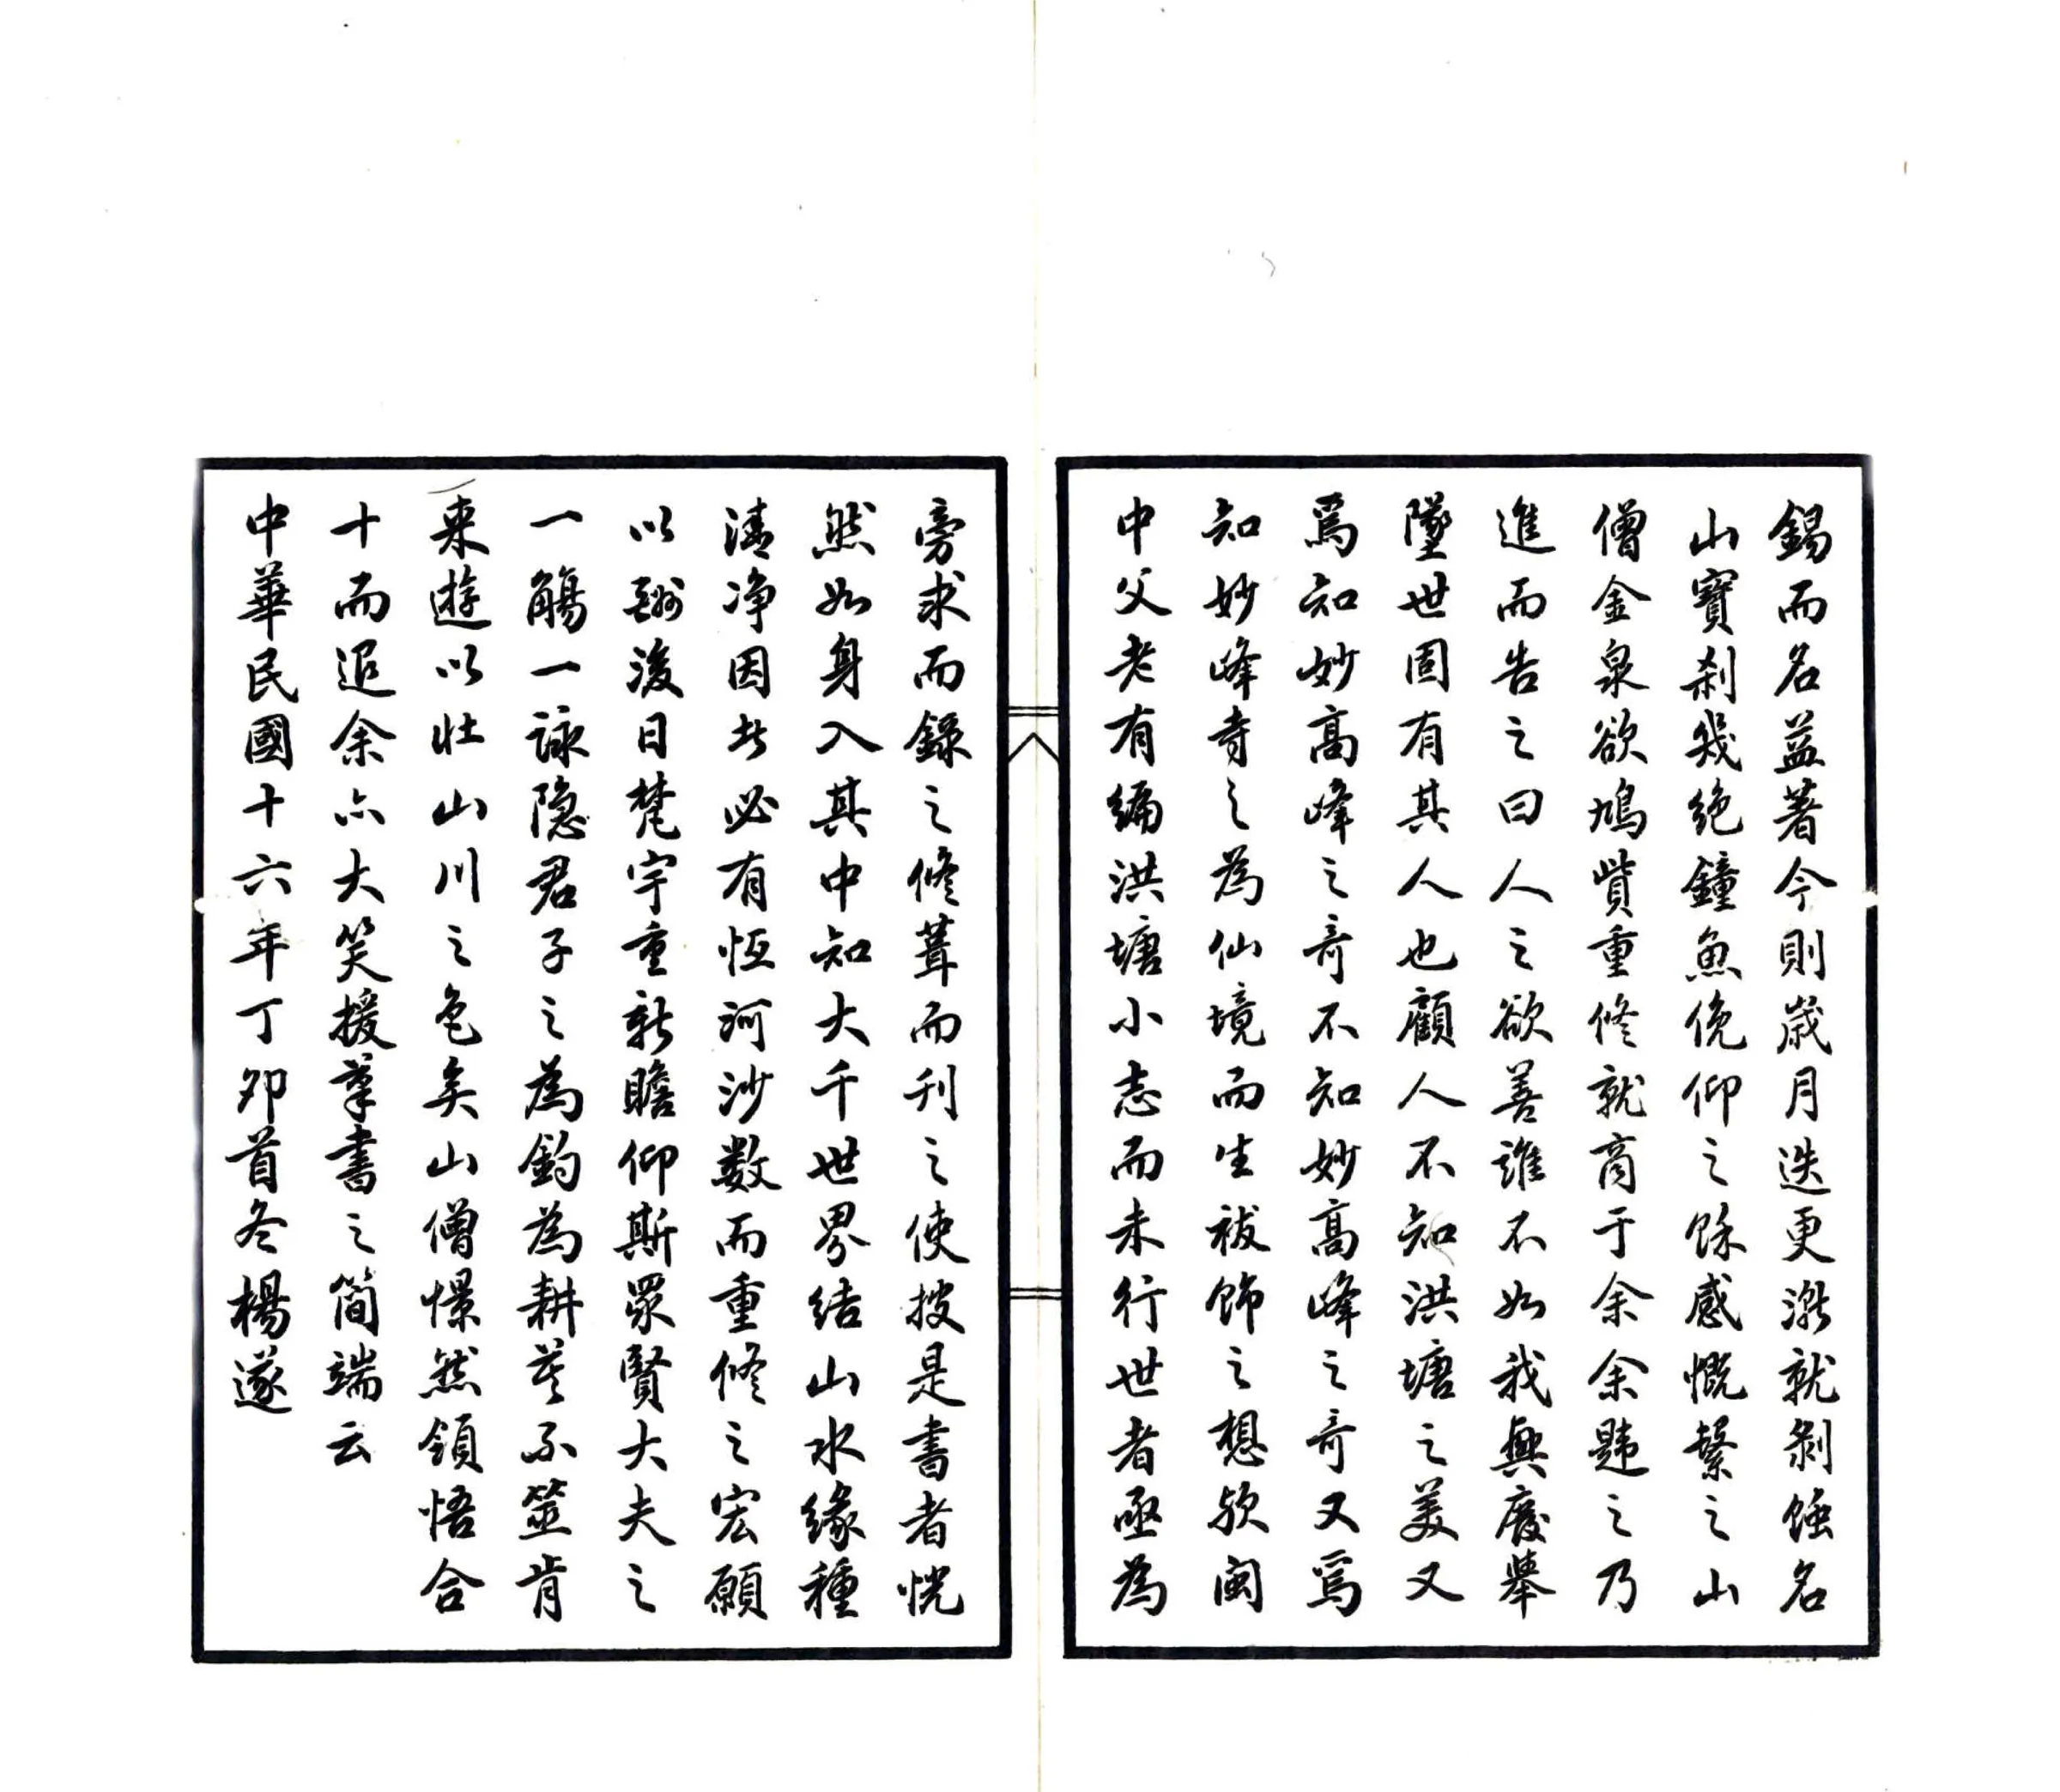 錫而名益著今則歲月迭更漸就剝蝕名
山寶刹幾絕鐘魚俛仰之餘感慨繫之山
僧金泉欲鳩貲重修就商于余余韙之乃
進而告之曰人之欲善誰不如我興廢舉
墜世固有其人也顧人不知洪塘之美又
焉知妙高峰之奇不知妙高峰之奇又焉
知妙峰寺之為仙境而生祓飾之想歟閩
中父老有編洪塘小志而未行世者亟為
旁求而錄之修葺而刊之使披是書者恍
然如身入其中知大千世界結山水緣種
清净因者必有恆河沙数而重修之宏願
以酬後日梵宇重新瞻仰斯眾賢大夫之
一觴一詠隐君子之為釣為耕莫不簪肯
来遊以壮山川之色矣山僧憬然領悟合
十而退余亦大笑援筆書之简端云
中華民國十六年丁卯首冬楊遂